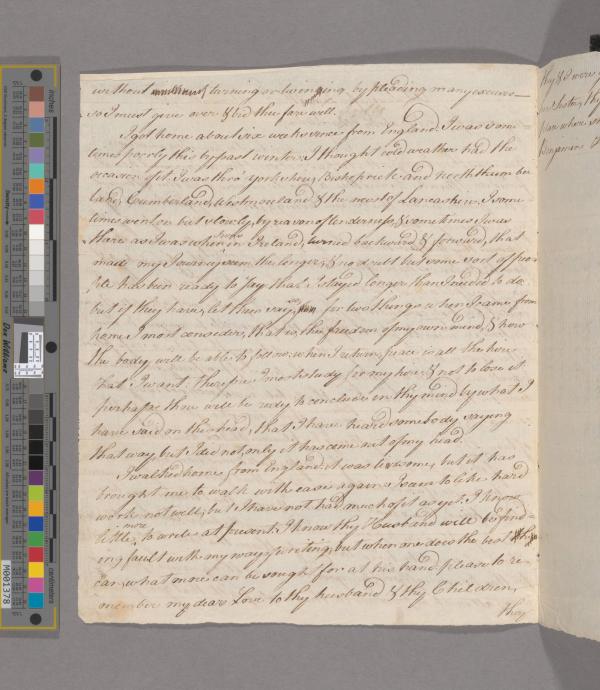 without turning or twinging by pleading many excuses
so I must give over & bid thee farewell.
I got home about six weeks since from England I was some=
times poorly this bypast winter I thought cold weather had the
occasion of it. I was thro' Yorkshire, Bishoprick and northumber
land, Cumberland, Westmorland & the most of Lancashire, I some
times went on but slowly, by reason of tenderness, & sometimes I was
there as I was when in Ireland, turned backward & forward, that
made my Journey seem the longer, & no doubt but some sort of peo
ple has been ready to say that I stayed longer than I needed to do
but if they have, let them say for two things when I came from
home I most consider, that is, the freedom of my own mind, & how
the body will be able to follow. when I return, peace is all the hire
that I want. Therefore I must study for my hire & not to lose it
perhaps thou will be ready to conclude in thy mind by what I
have said on this head, that I have heard somebody saying
that way, but I did not, only it has come out of my head.
I walked home from England, it was tiresome, but it has
brought me to walk with ease again I came to like hard
work not well, but I have not had much of it as yet. I know
little more to write at present. I know thy Husband will be find=
ing fault with my way of writing, but when one does the best they
can, what more can be sought for at his hand, please to re
member my dear Love to thy husband & thy Children,
they
M001378
inches
centimeters
Don Williams